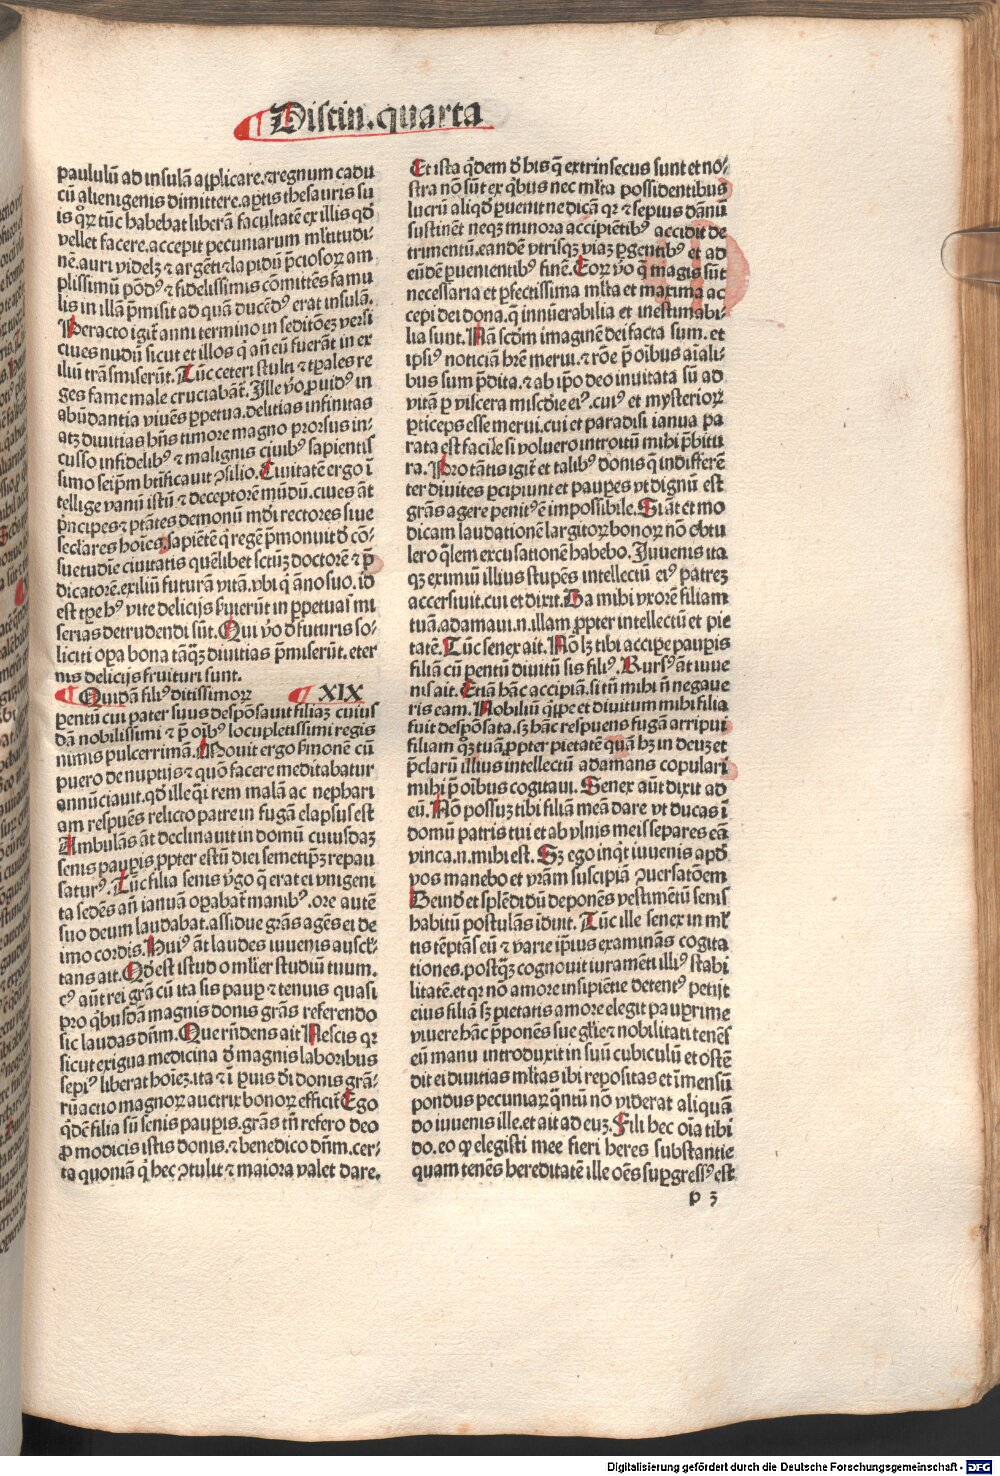 Distin. quarta
paululū ad insulā applicare. ⁊ regnum cadu
cū alienigenis dimittere. aꝑtis thesauris su
is qꝫ tūc habebat liberā facultatē ex illis qd̄
vellet facere. accepit pecuniarum ml̓titudi-
nē. auri videlꝫ ⁊ argēti ⁊ lapidū p̄ciosoꝝ am
plissimū pōdꝰ ⁊ fidelissimis cōmittēs famu
lis in illā p̄misit ad quā ducēdꝰ erat insulā.
Peracto igit̄ anni termino in seditōeꝫ versi
ciues nudū sicut et illos q̇ añ eū fuerāt in ex
iliū trāsmiserūt. Tūc ceteri stulti ⁊ tꝑales re
ges fame male cruciabāt̄. Ille v̓o ꝓuidꝰ in
abūdantia viuēs ꝑpetua. delitias infinitas
atꝫ diuitias hn̄s timore magno prorsus in-
cusso infidelibꝰ ⁊ malignis ciuibꝰ sapientis
simo seip̄m btificauit ꝯsilio. Ciuitatē ergo ī
tellige vanū istū ⁊ deceptorē mūdū. ciues āt
p̄ncipes ⁊ ptātes demonū mōi rectores siue
secl̓ares hoīes. sapiētē q̇ regē p̄monuit d̄ cō-
suetudīe ciuitatis quēlibet sctūꝫ doctorē ⁊ p̄
dicatorē. exiliū futurā vitā. vbi q̇ āno suo. id
est tꝑe hꝰ vite delicijs fruiti erūt in ꝑpetuas mi
serias detrudendi sūt. Qui v̓o d̄ futuris so-
liciti oꝑa bona tāq̇ꝫ diuitias p̄miserūt. eter
nis delicijs fruituri sunt.
Quidā filiꝰ ditissimoꝝ XIX
ꝑentū cui pater suus despōsauit filiaꝫ cuius
dā nobilissimi ⁊ p̄ oībꝰ locupletissimi regis
nimis pulcerrimā. Mouit ergo ẜmonē cū
puero de nuptijs ⁊ quō facere meditabatur
annūciauit. qd̓ ille q̇i rem malā ac nephari
am respuēs relicto patre in fugā elapsus est
Ambulās āt declinauit in domū cuiusdaꝫ
senis pauꝑis ꝓpter estū diei semetip̄ꝫ repau
saturꝰ. Tūc filia senis v̓go q̄ erat ei vnigeni
ta sedēs añ ianuā oꝑabat̄ manibꝰ. ore autē
suo deum laudabat. assidue grās agēs ei de
imo cordis. Huiꝰ āt laudes iuuenis auscl̓-
tans ait. Qd̓ est istud o ml̓ier studiū tuum.
cꝰ aūt rei grā cū ita sis pauꝑ ⁊ tenuis quasi
pro q̇busdā magnis donis grās referendo
sic laudas dn̄m. Que rn̄dens ait Nescis qꝛ
sicut exigua medicina d̄ magnis laboribus
sepiꝰ liberat hoīeꝫ. ita ⁊ ī ꝑuis d̓i donis grā-
rū actio magnoꝝ auctrix bonoꝝ efficit̄ Ego
q̇dē filia sū senis pauꝑis. grās tn̄ refero deo
ꝓ modicis istis donis. ⁊ benedico dn̄m. cer-
ta quoniā q̇ hec ꝯtulit ⁊ maiora valet dare.
Et ista q̇dem d̄ his q̄ extrinsecus sunt et nō-
stra nō sūt ex q̇bus nec ml̓ta possidentibus
lucrū aliqd̓ ꝑuenit ne dicā qꝛ ⁊ sepius dānū
sustinēt neqꝫ minora accipiētibꝰ accidit de
trimentū. eandē vtrisqꝫ viaꝫ ꝑgentibꝰ et ad
eūdē ꝑuenientibꝰ finē. Eoꝝ v̓o q̄ magis sūt
necessaria et ꝑfectissima ml̓ta et maxima ac
cepi dei dona. q̄ innūerabilia et inestimabi-
lia sunt. Nā scd̓m imaginē dei facta sum. et
ipsiꝰ noticiā hr̄e merui. ⁊ rōe p̄ oībus aīali-
bus sum p̄dita. ⁊ ab ip̄o deo inuitata sū ad
vitā ꝑ viscera misc̓die eiꝰ. cuiꝰ et mysterioꝝ
ꝑticeps esse merui. cui et paradisi ianua pa
rata est facile si voluero introitū mihi p̄bitu
ra. Pro tātis igit̄ et talibꝰ donis q̄ indifferē
ter diuites ꝑcipiunt et pauꝑes vt dignū est
grās agere penitꝰ ē impossibile. Si āt et mo
dicam laudationē largitoꝝ bonoꝝ nō obtu
lero q̄lem excusationē habebo. Juuenis ita
qꝫ eximiū illius stupēs intellectū eiꝰ patreꝫ
accersiuit. cui et dixit. Da mihi vxorē filiam
tuā. adamaui. n. illam ꝓpter intellectū et pie
tatē. Tūc senex ait. Nō lꝫ tibi accipe pauꝑis
filiā cū ꝑentū diuitū sis filiꝰ. Rursꝰ āt iuue
nis ait. Etiā hāc accipiā. si tn̄ mihi ñ negaue
ris eam. Nobiliū q̇ꝓe et diuitum mihi filia
fuit despōsata. sꝫ hāc respuens fugā arripui
filiam q̇ꝫ tuā ꝓpter pietatē quā hꝫ in deuꝫ et
p̄clarū illius intellectū adamans copulari
mihi p̄ oībus cogitaui. Senex aūt dixit ad
eū. Nō possuꝫ tibi filiā meā dare vt ducas ī
domū patris tui et ab vlnis meis separes eā
vnica. n. mihi est. Sꝫ ego inq̇t iuuenis apd̓
vos manebo et vrām suscipiā ꝯuersatōem
Deind̓ et splēdidū deponēs vestimētū senis
habitū postulās īdūit. Tūc ille senex in ml̓
tis tēptās eū ⁊ varie ip̄ius examinās cogita
tiones. postq̇ꝫ cognouit iuramēti illiꝰ stabi
litatē. et qꝛ nō amore insipiētie detentꝰ petijt
eius filiā sꝫ pietatis amore elegit pauꝑime
viuere hāc p̄ponēs sue gl̓ie ⁊ nobilitati tenēs
eū manu introduxit in suū cubiculū et ostē
dit ei diuitias ml̓tas ibi repositas et īmensū
pondus pecuniaꝝ q̇ntū nō viderat aliquā
do iuuenis ille. et ait ad euꝫ. Fili hec oīa tibi
do. eo ꝙ elegisti mee fieri heres substantie
quam tenēs hereditatē ille oēs suꝑgressꝰ est
p 3
Digitalisierung gefördert durch die Deutsche Forschungsgemeinschaft - DFG